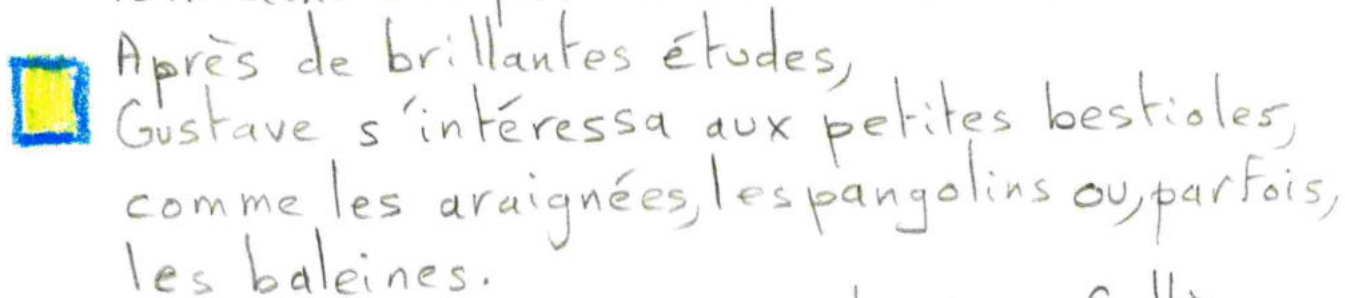 Après de brillantes études,
Gustave s'intéressa aux petites bestioles,
comme les araignées, les pangolins ou, parfois,
les baleines.